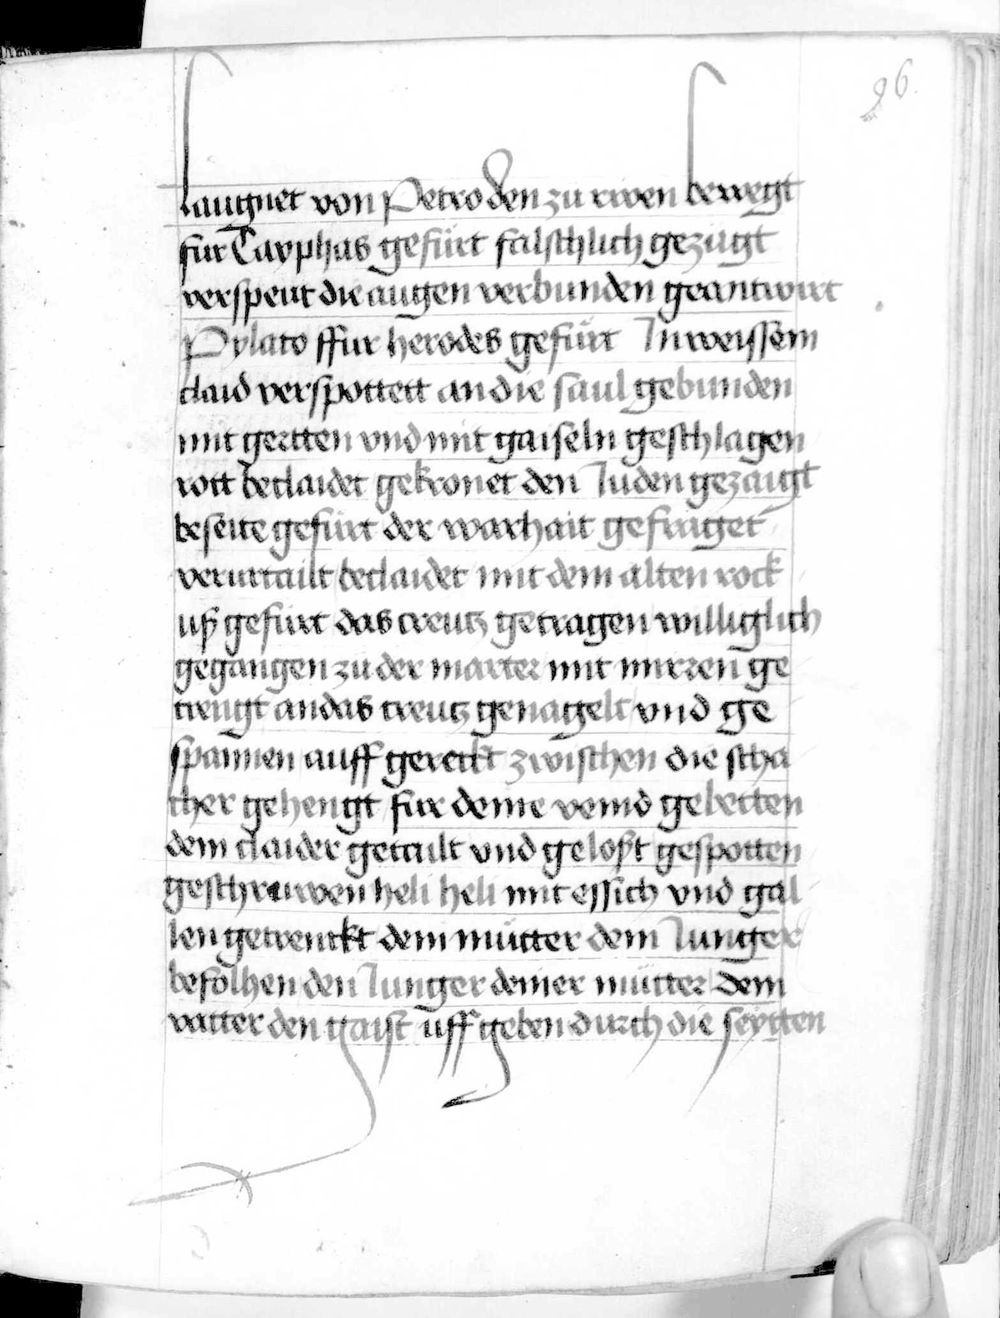 96
laugnet von Petro den zu riwen bewegt
für Cayphas gefürt falschlich gezugt
verspeut die augen verbunden geantwurt
Pylato ffur herodes gefürt In weyssem
claid verspottett an die saul gebunden
mit gertten vnd mit gaiseln geschlagen
rott beclaidet gekronet den Juden gezaigt
beseite gefürt der warhait gefraget
verurtailt beclaidet mit dem alten rock
uß gefürt das creutz getragen williglich
gegangen zu der marter mit mirren ge
trengt an das creutz genagelt vnd ge
spannen auff gereckt zwischen die scha
cher gehengt für deine veind gebetten
dem claider getailt vnd geloßt gespotten
geschruwen heli heli mit essich vnd gal
len getrenckt dem mütter dem Junger
befolhen den Junger deiner mütter dem
vatter den gaist uff geben durch die seytten